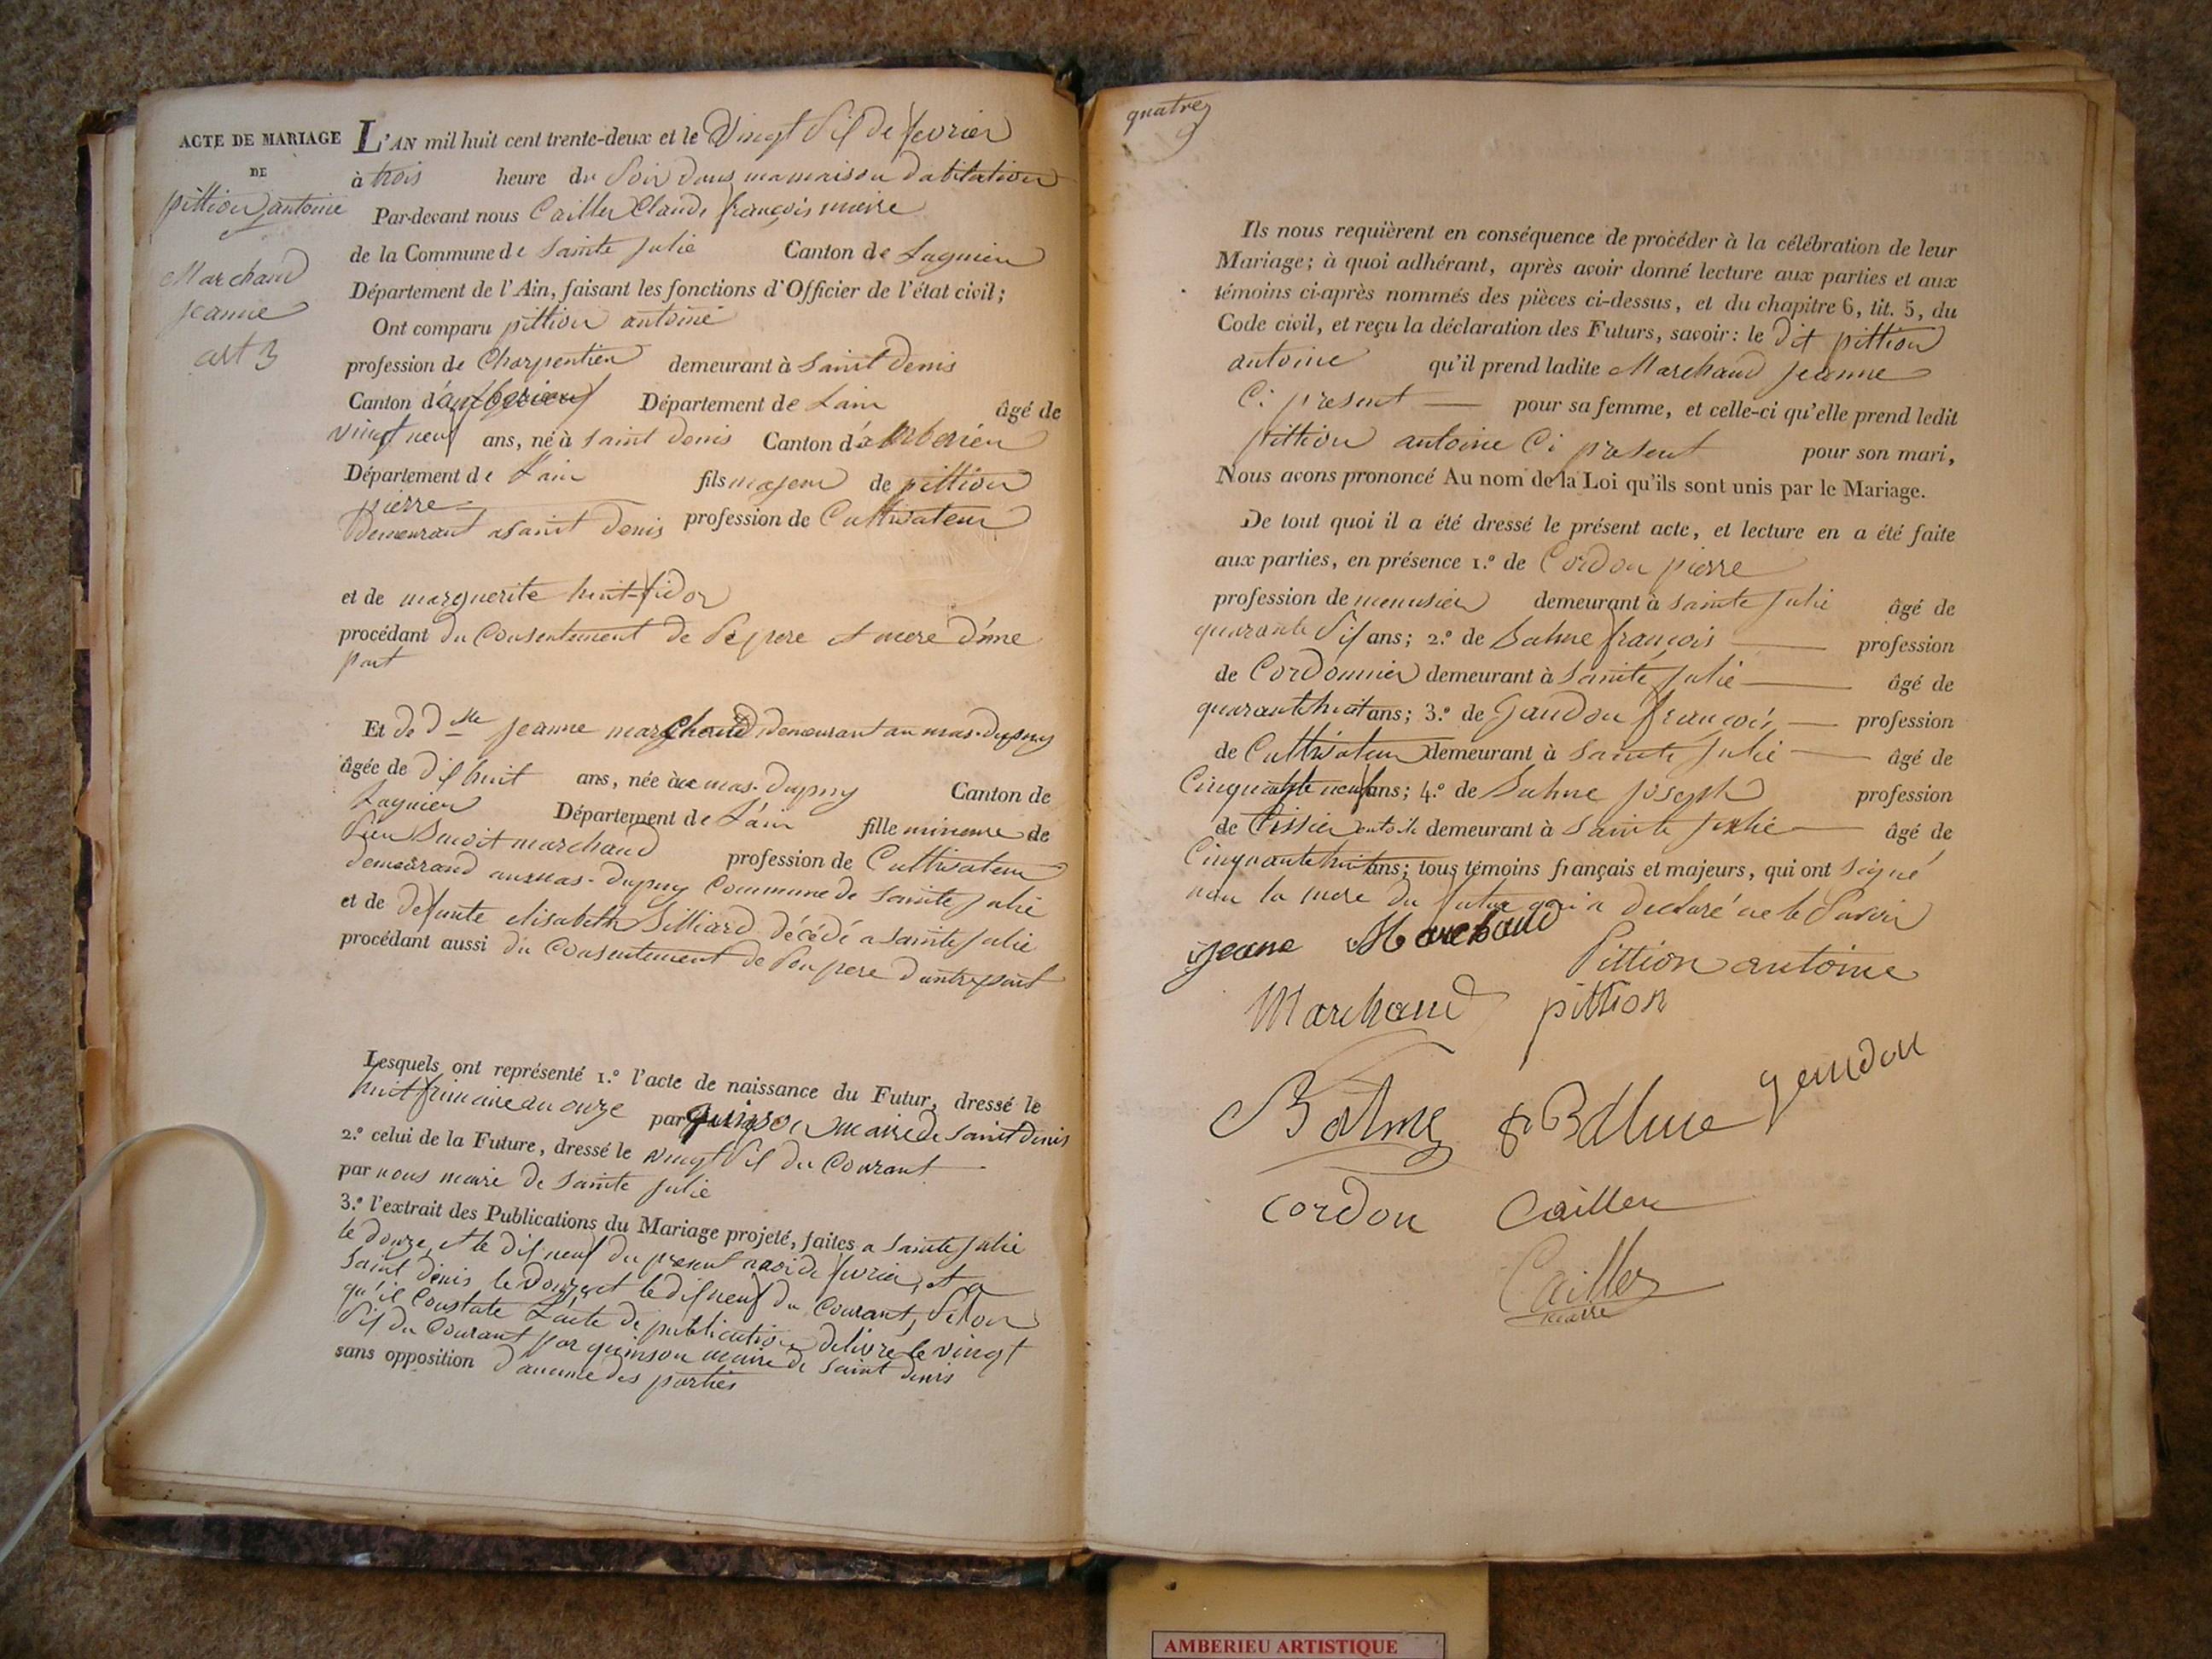 ACTE DE MARIAGE
DE
pittion antoine
Marchand
jeanne
art 3
L'AN mil huit cent trente-deux et le vingt sif de fevrier
à trois heure du soir dans ma maison dabitation
Par-devant nous Cailler Claude françois maire
de la Commune de Sainte Julie Canton de Lagnieu
Département de l'Ain, faisant les fonctions d'Officier de l'état civil;
Ont comparu pittion antoine
profession de Charpentier demeurant à Saint Denis
Canton d'ambérieux Département de Lain âgé de
vingt neuf ans, né à Saint Denis Canton d'amberieu
Département de Lain fils majeur de pittion
pierre
Demeurant a Saint Denis profession de Cultivateur
et de marguerite huit-fidor
procédant du Consentement de Se pere et mere d'une
part
Et de dlle jeanne marchand demeurant au mas-dupuy
âgée de dif huit ans, née au mas-dupuy Canton de
Lagnieu Département de L'ain fille mineure de
Sieu Benoit marchand profession de Cultivateur
demeurand au mas-dupuy Commune de Sainte Julie
et de defunte elisabeth Silliard décédé a Sainte Julie
procédant aussi du Consentement de Son pere d'autre part
Lesquels ont représenté 1.º l'acte de naissance du Futur, dressé le
huit frimaire an onze par quinson maire de Saint Denis
2.º celui de la Future, dressé le vingt Sif du Courant
par nous maire de Sainte Julie
3.º l'extrait des Publications du Mariage projeté, faites a Sainte Julie
le douze et le dif neuf du present moi de fevrier, et a
Saint Denis le douze et le dif neuf du Courant, Selon
qu'il Constate L'acte de publication delivré le vingt
Sif du Courant par quinson maire de Saint Denis
sans opposition d'aucune des parties
quatre
Ils nous requièrent en conséquence de procéder à la célébration de leur
Mariage; à quoi adhérant, après avoir donné lecture aux parties et aux
témoins ci-après nommés des pièces ci-dessus, et du chapitre 6, tit. 5, du
Code civil, et reçu la déclaration des Futurs, savoir: le dit pittion
antoine qu'il prend ladite Marchand jeanne
Ci present pour sa femme, et celle-ci qu'elle prend ledit
pittion antoine Ci present pour son mari,
Nous avons prononcé Au nom de la Loi qu'ils sont unis par le Mariage.
De tout quoi il a été dressé le présent acte, et lecture en a été faite
aux parties, en présence 1.º de Cordon pierre
profession de menusier demeurant à Sainte Julie âgé de
quarante Sif ans; 2.º de Balme françois profession
de Cordonnier demeurant à Sainte Julie âgé de
quarante huit ans; 3.º de Gandon françois profession
de Cultivateur demeurant à Sainte Julie âgé de
Cinquante neuf ans; 4.º de Balme joseph profession
de Tissier entoile demeurant à Sainte Julie âgé de
Cinquante huit ans; tous témoins français et majeurs, qui ont Signé
non la mere du futur qui a declaré ne le Savoir
jeane Marchand
Pittion antoine
Marchand pittion
Balme Balme gandon
Cordon Cailler
Cailler
maire
AMBERIEU ARTISTIQUE